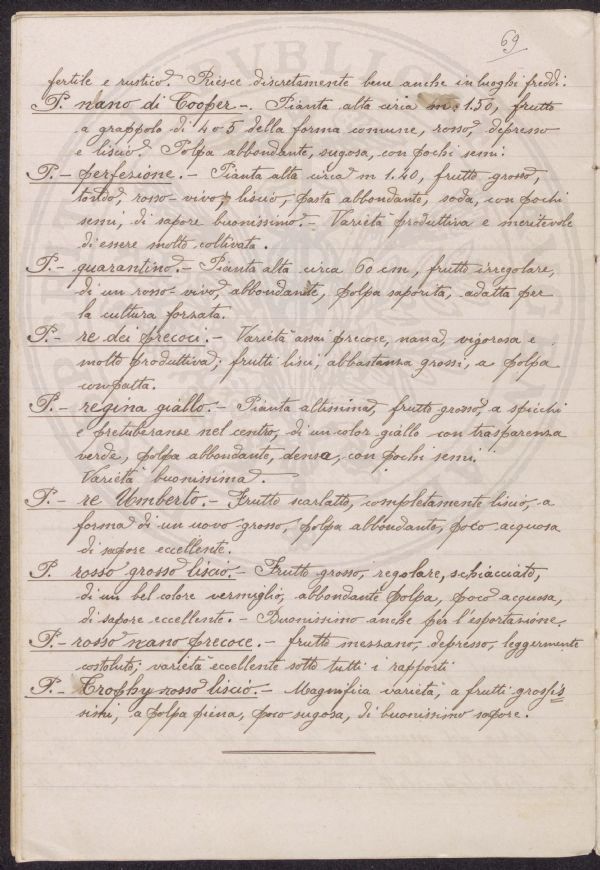 69
fertile e rustico. Riesce discretamente bene anche in luoghi freddi.
P. nano di Cooper -. Pianta alta circa m. 1.50, frutto
a grappolo di 4 o 5 della forma comune, rosso, depresso
e liscio. Polpa abbondante, sugosa, con pochi semi.
P. - perfezione. - Pianta alta circa m 1.40, frutto grosso,
tondo, rosso-vivo, liscio, pasta abbondante, soda, con pochi
semi, di sapore buonissimo. - Varietà produttiva e meritevole
di essere molto coltivata.
P. - quarantino. - Pianta alta circa 60 cm, frutto irregolare,
di un rosso-vivo, abbondante, polpa saporita, adatta per
la cultura forzata.
P. - re dei precoci. - Varietà assai precoce, nana, vigorosa e
molto produttiva; frutti lisci, abbastanza grossi, a polpa
compatta.
P. - regina giallo. - Pianta altissima, frutto grosso, a spicchi
e pretuberanze nel centro, di un color giallo con trasparenza
verde, polpa abbondante, densa, con pochi semi.
Varietà buonissima.
P. - re Umberto. - Frutto scarlatto, completamente liscio, a
forma di un uovo grosso, polpa abbondante, poco acquosa
di sapore eccellente.
P. rosso grosso liscio. - Frutto grosso, regolare, schiacciato,
di un bel colore vermiglio, abbondante polpa, poco acquosa,
di sapore eccellente. - Buonissimo anche per l'esportazione.
P. - rosso nano precoce. - frutto mezzano, depresso, leggermente
costoluto, varietà eccellente sotto tutti i rapporti
P. - Trophy rosso liscio. - Magnifica varietà, a frutti grossis
simi, a polpa piena, poco sugosa, di buonissimo sapore.